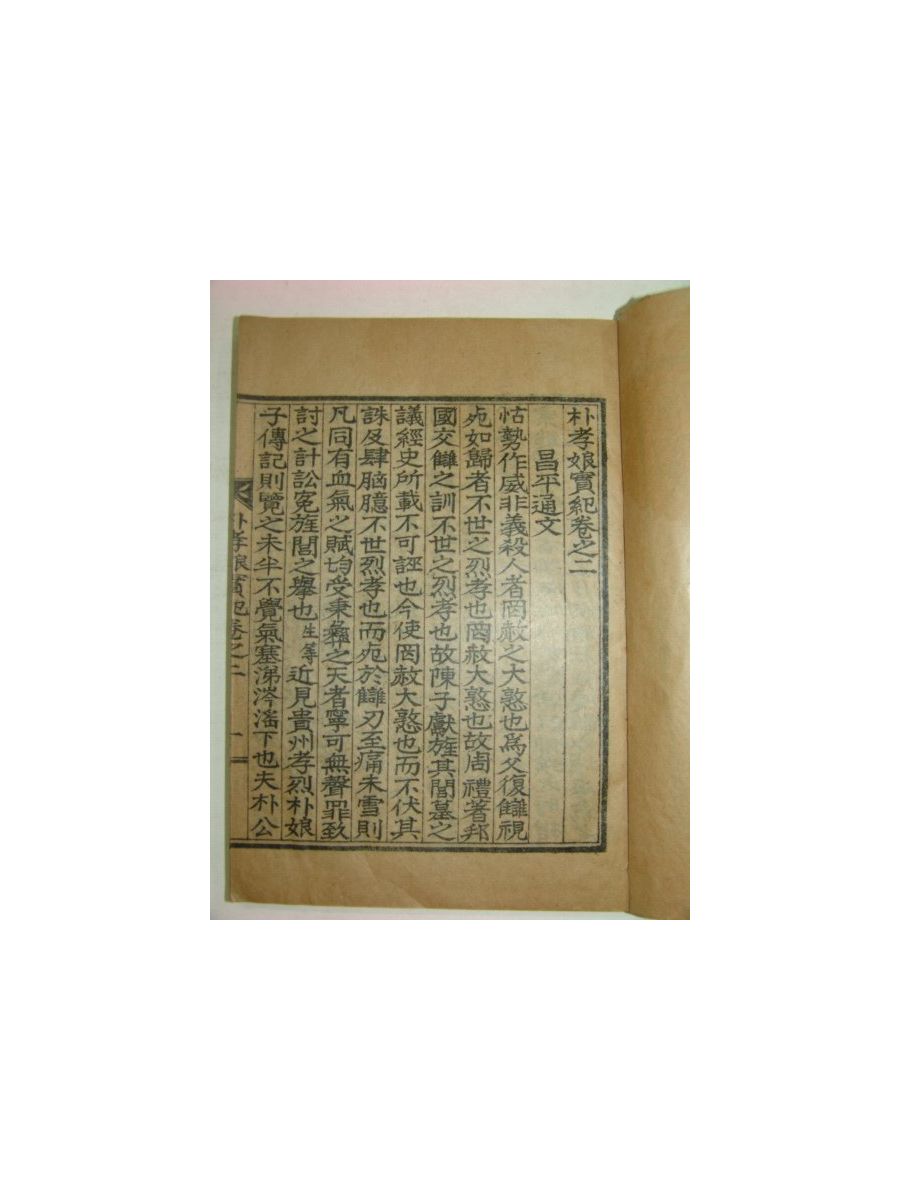 朴孝娘實紀卷之二
昌平通文
怙勢作威非義殺人者罔赦之大憝也爲父復讎視
死如歸者不世之烈孝也罔赦大憝也故周禮著邦
國交讎之訓不世之烈孝也故陳子獻旌其閭墓之
議經史所載不可誣也今使罔赦大憝也而不伏其
誅反肆脑臆不世烈孝也而死於讎刃至痛未雪則
凡同有血氣之賦均受秉彝之天者寧可無聲罪致
討之計訟寃旌閭之擧也生等近見貴州孝烈朴娘
子傳記則覽之未半不覺氣塞涕涔滛下也夫朴公
朴孝娘實紀卷之二 一